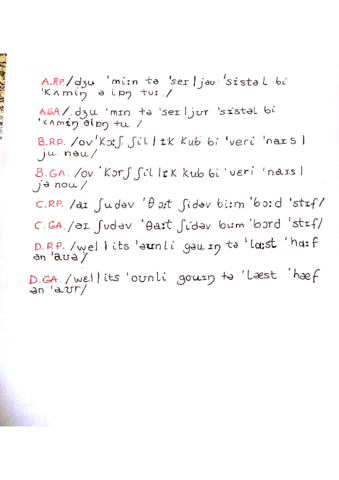 A.RP./dʒu 'mi:n tə 'seɪ|jəu 'sistəl bi
'Kʌmɪŋ ə lɒŋ tu: /
A.GA/. dʒu 'mɪn tə 'seɪ|jʊr 'sɪstəl bi
'kʌmɪŋ əlɒŋ tu /
B.RP. /ov 'Kɔ:ʃ ʃil|ɪK Kub bi 'veri 'naɪs|
ju nəu/
B.GA. /ov 'Kɔrʃ ʃil|ɪK Kub bi 'veri 'naɪs|
jə nou/
C.RP. /aɪ ʃudəv 'θɔ:t ʃidəv bi:m 'bɔ:d 'stɪf/
C.GA. /aɪ ʃudəv 'θaɪt ʃidəv bɪm 'bɔrd 'stɪf/
D.RP. /wel|its 'əunli gəuɪŋ tə 'lɑ:st 'hɑ:f
ən 'auə/
D.GA. /wel|its 'ounli gouɪŋ tə 'læst 'hæf
ən 'aʊr/